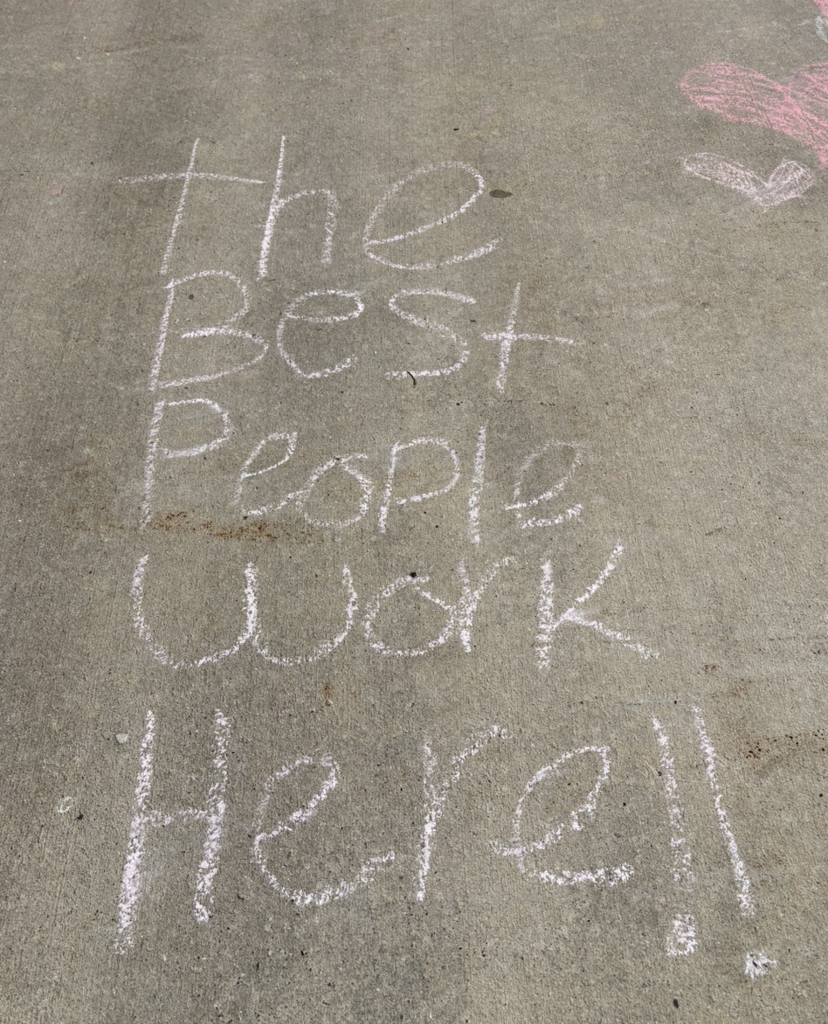 the
Best
People
work
Here!!